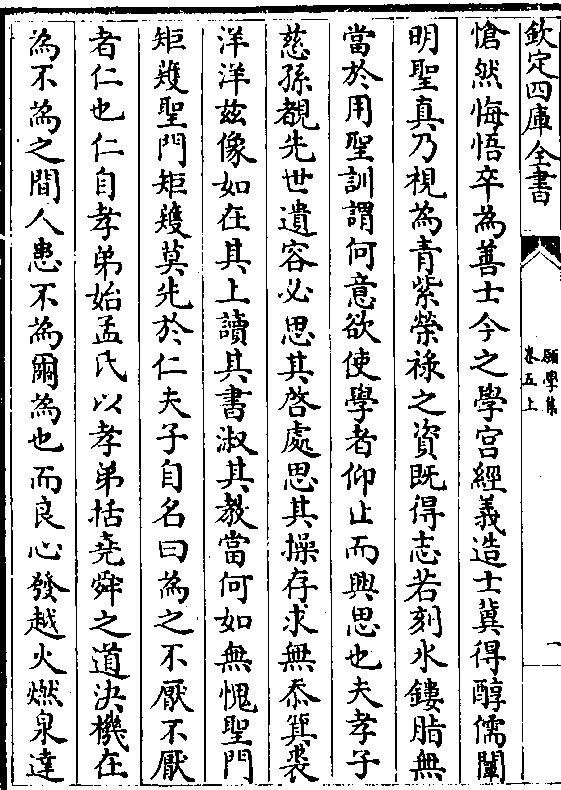 欽定四庫全書
願學集
卷五上
一
愴然悔悟卒為善士今之學宫經義造士冀得醇儒闡
明聖真乃視為青紫榮祿之資既得志若刻氷鏤脂無
當於用聖訓謂何意欲使學者仰止而興思也夫孝子
慈孫覩先世遺容必思其啓處思其操存求無忝箕裘
洋洋兹像如在其上讀其書淑其教當何如無愧聖門
矩矱聖門矩矱莫先於仁夫子自名曰為之不厭不厭
者仁也仁自孝弟始孟氏以孝弟括堯舜之道決機在
為不為之間人患不為爾為也而良心發越火燃泉達